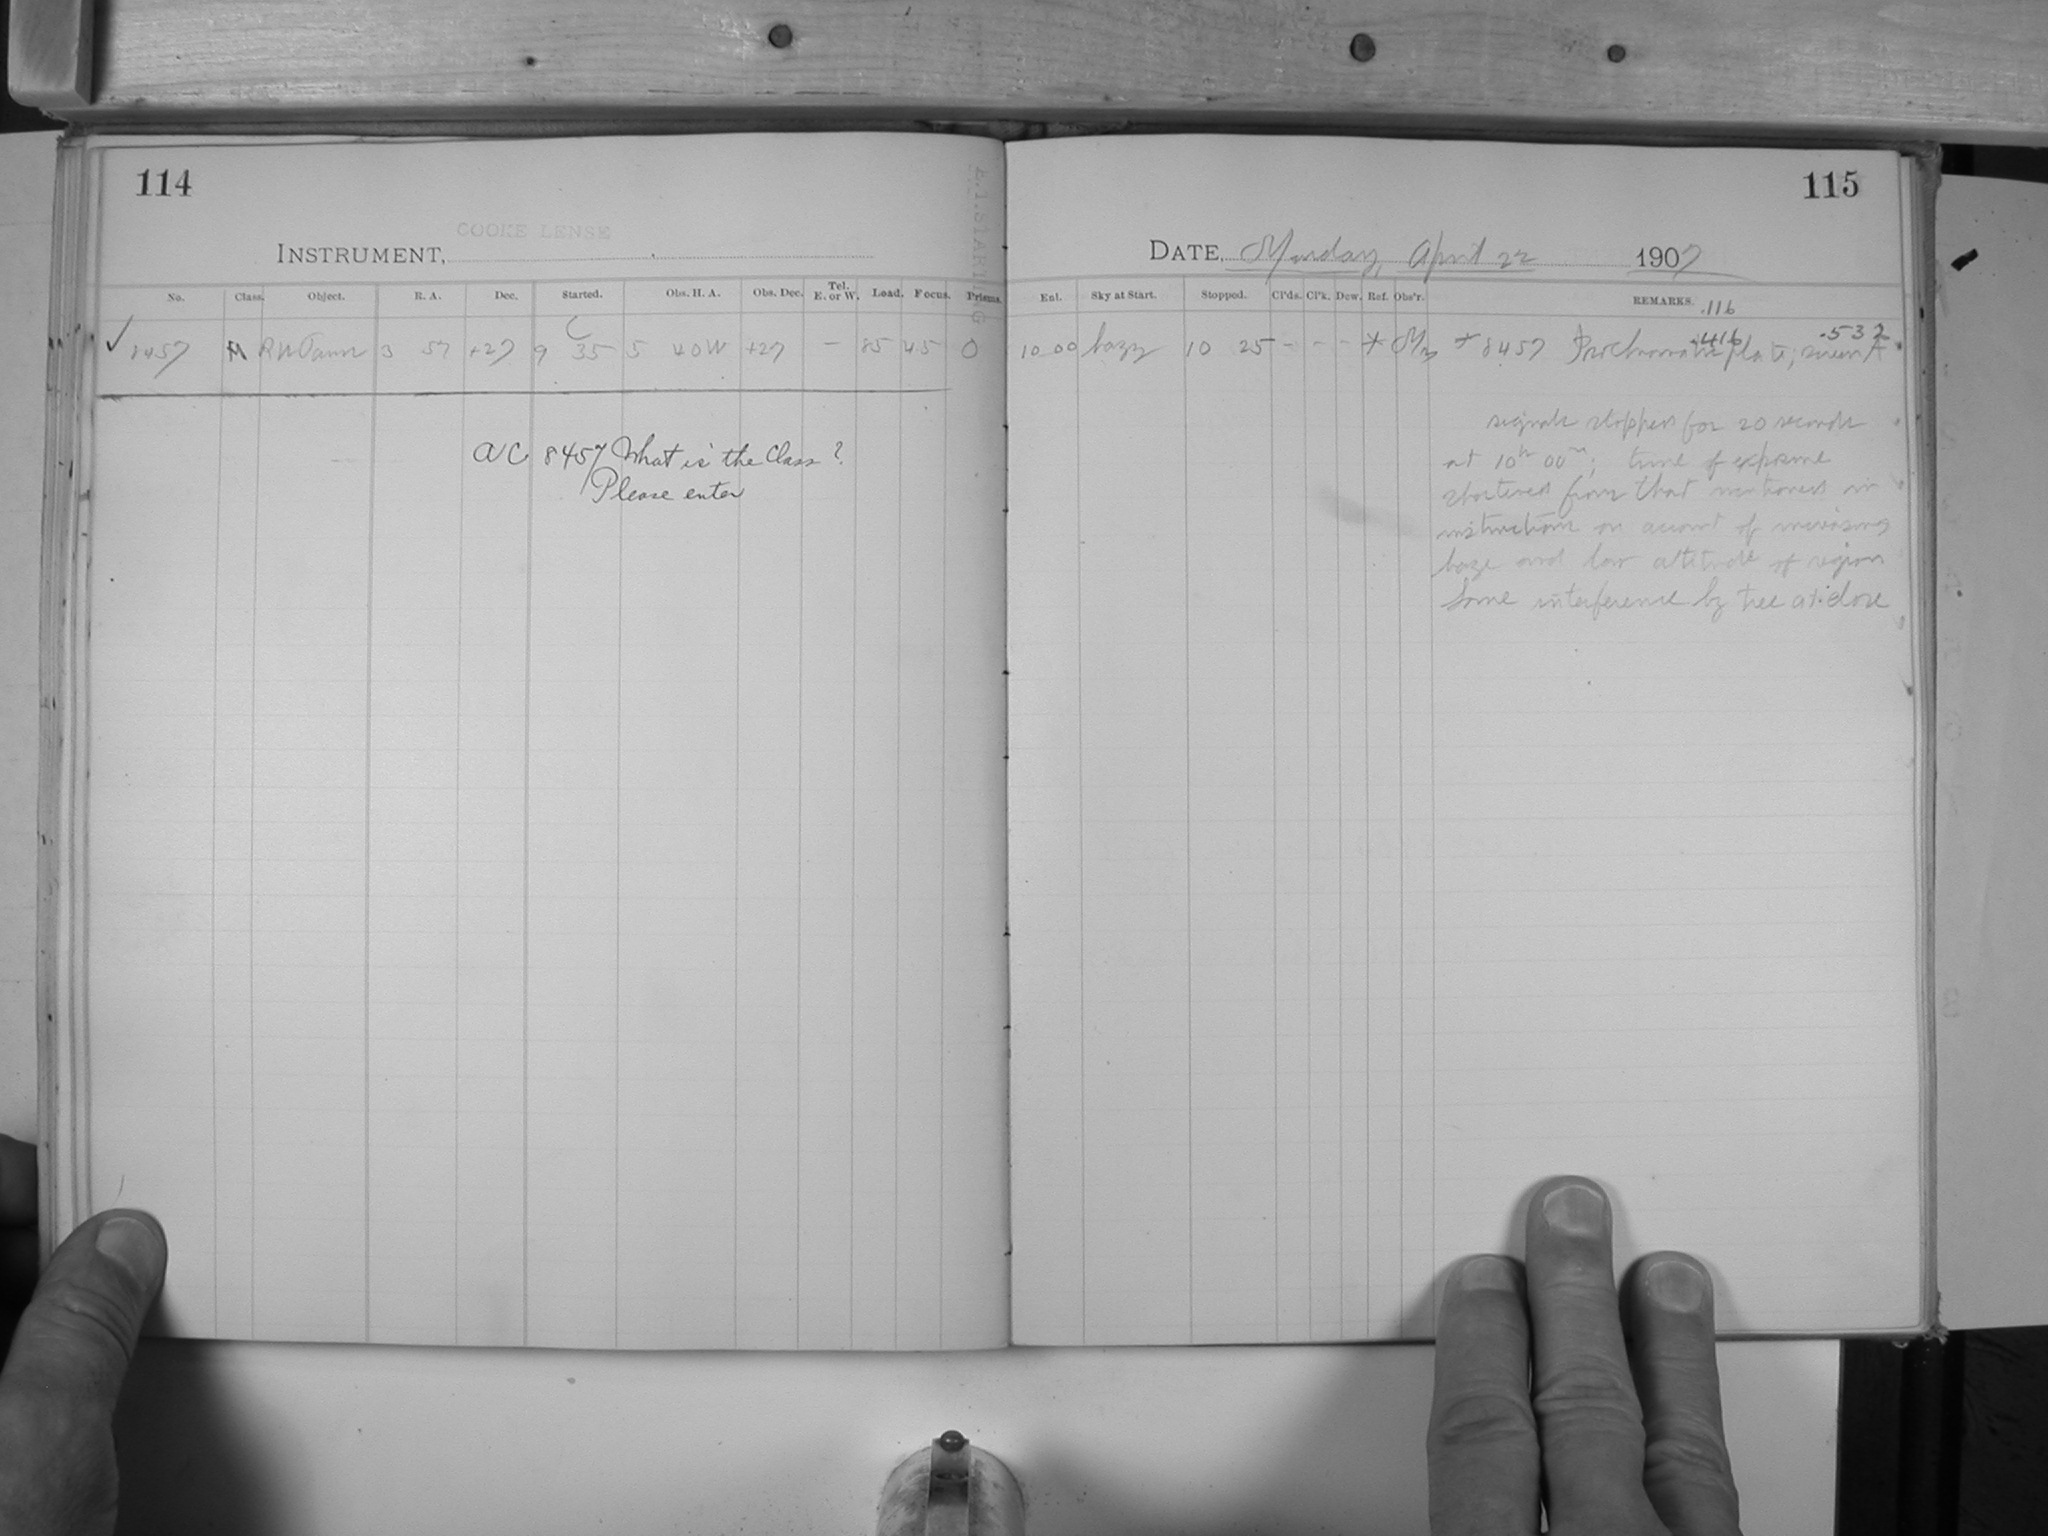 114
COOKE LENSE
INSTRUMENT,
No. Class. Object. R. A. Dec. Started. Obs. H. A. Obs. Dec. Tel. E. or W. Load. Focus. Prisms.
✓ 8457 M RW Tauri 3 57 +27 9 35 5 40W +27 – 85 45 0
AC 8457 What is the Class?
Please enter
115
DATE, Monday, April 22 1907
Ent. Sky at Start. Stopped. Cl'ds. Cl'k. Dew. Ref. Obs'r. REMARKS.
.116
.416 .532
10 00 hazy 10 25 – – – * * 8457 Isochromatic plate; screen A
signals stopped for 20 seconds
at 10h 00m; time of exposure
shortened from that mentioned in
instructions on account of increasing
haze and low altitude of region
Some interference by tree at close